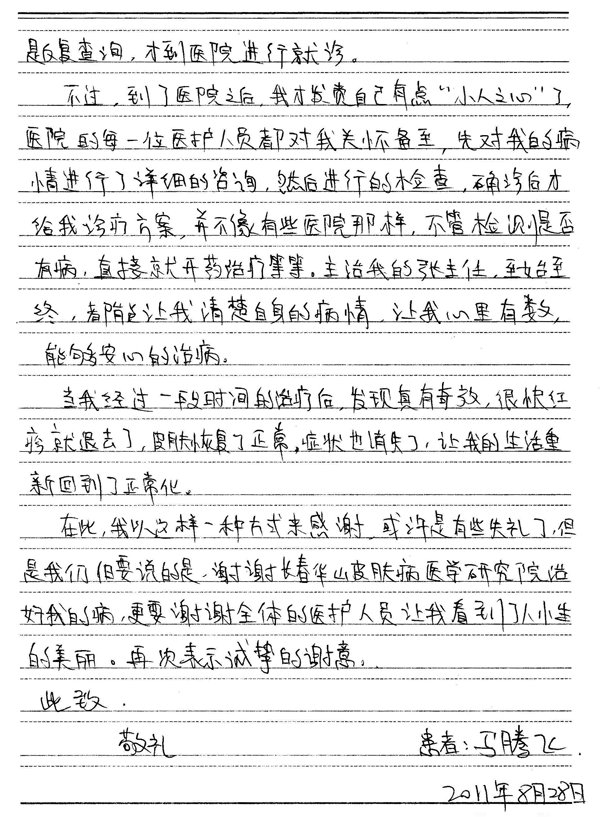 是反复查询，才到医院进行就诊。
不过，到了医院之后，我才发觉自己有点“小人之心”了，
医院的每一位医护人员都对我关怀备至，先对我的病
情进行了详细的咨询，然后进行的检查，确诊后才
给我诊疗方案，并不像有些医院那样，不管检测是否
有病，直接就开药治疗等等。主治我的张主任，至始至
终，都能让我清楚自身的病情，让我心里有数，
能够安心的治病。
当我经过一段时间的治疗后，发现真有奇效，很快红
疹就退去了，皮肤恢复了正常，症状也消失了，让我的生活重
新回到了正常化。
在此，我以这样一种方式来感谢，或许是有些失礼了，但
是我们但要说的是，谢谢长春华山皮肤病医学研究院治
好我的病，更要谢谢全体的医护人员让我看到了人生
的美丽。再次表示诚挚的谢意。
此致.
敬礼 患者：马腾飞.
2011年8月28日